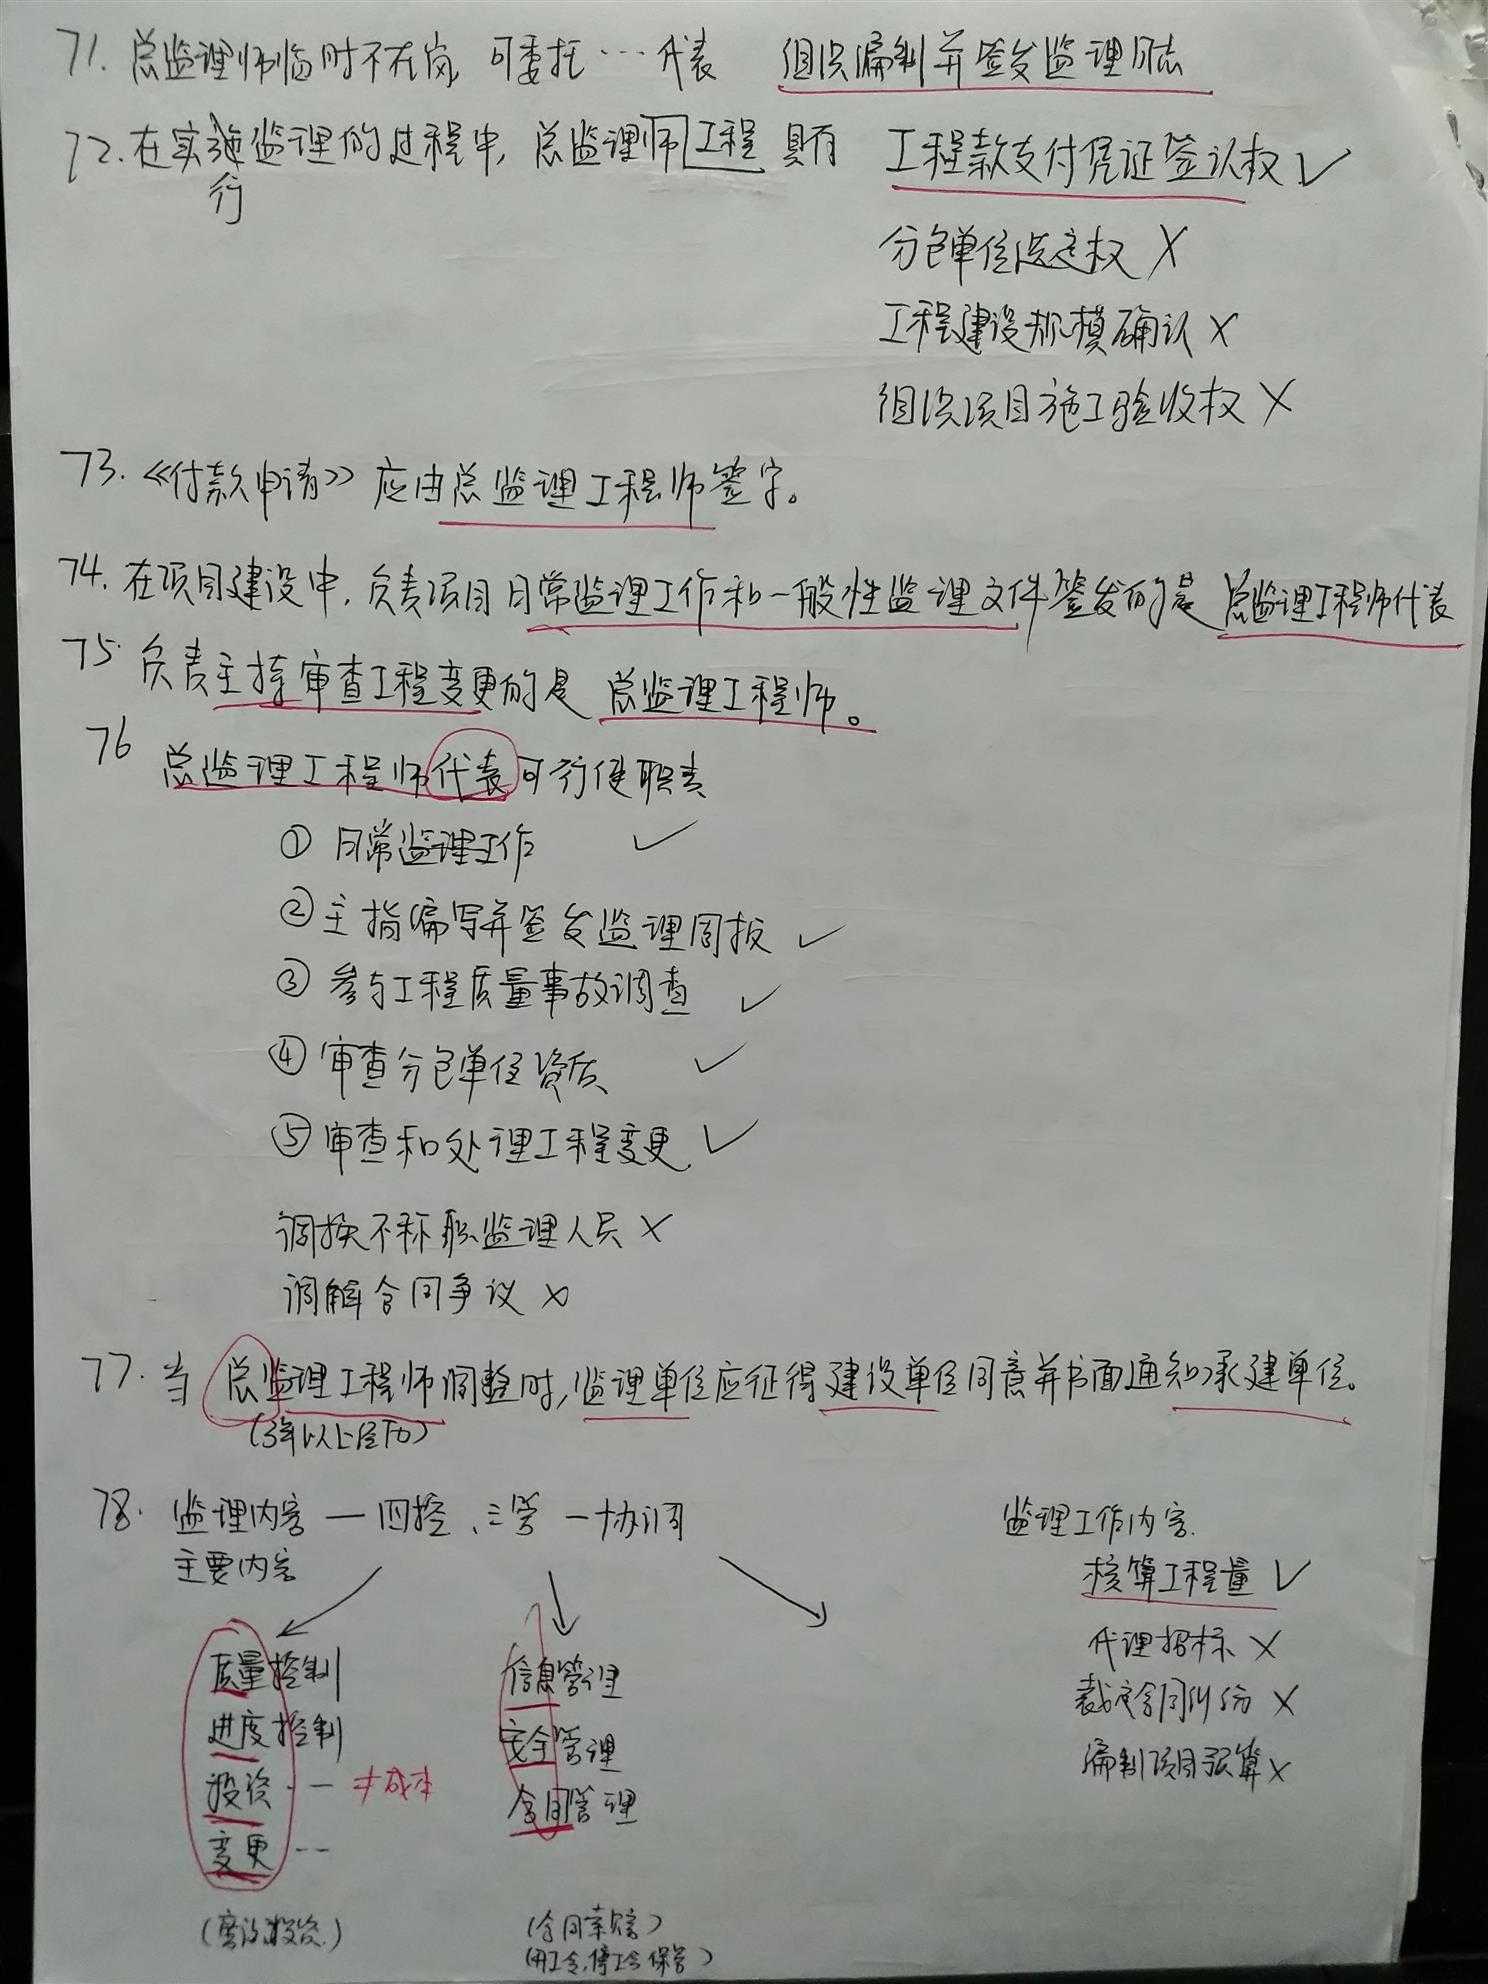 71. 总监理师临时不在岗, 可委托…代表 组织编制并签发监理日志
72. 在实施监理的过程中, 总监理师工程 具有 工程款支付凭证签认权 ✓
行
分包单位选定权 ×
工程建设规模确认 ×
组织项目施工验收权 ×
73. 《付款申请》应由总监理工程师签字。
74. 在项目建设中, 负责项目日常监理工作和一般性监理文件签发的是 总监理工程师代表
75. 负责主持审查工程变更的是 总监理工程师。
76 总监理工程师代表可行使职责
① 日常监理工作 ✓
② 主指编写并签发监理周报 ✓
③ 参与工程质量事故调查 ✓
④ 审查分包单位资质 ✓
⑤ 审查和处理工程变更 ✓
调换不称职监理人员 ×
调解合同争议 ×
77. 当总监理工程师调整时, 监理单位应征得建设单位同意并书面通知承建单位。
(3年以上经历)
78. 监理内容 — 四控、三管 一协调
主要内容
质量控制
进度控制
投资 -- ≠成本
变更 --
信息管理
安全管理
合同管理
(合同索赔)
(开工令,停工令保管)
监理工作内容.
核算工程量 ✓
代理招标 ×
裁定合同纠纷 ×
编制项目预算 ×